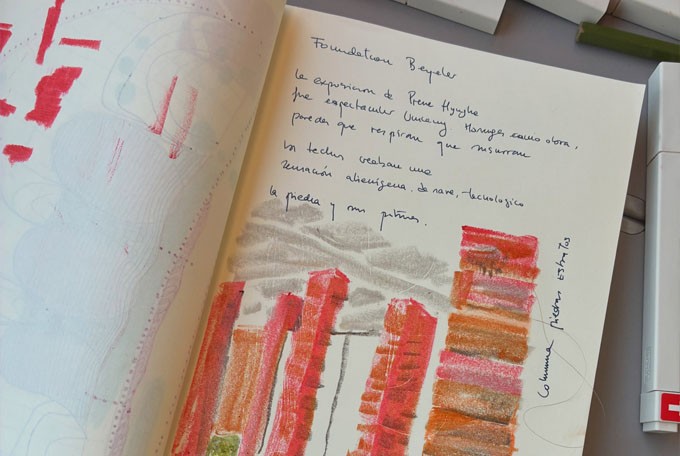 Foundation Beyeler
la exposicion de Pierre Huyghe
fue espectacular Umwelg Hormigas como obra,
paredes que respiran que susurran
los techos creaban una
sensación alienígena. de nave, tecnologico
la piedra y sus pitures.
Columna piedras estratos